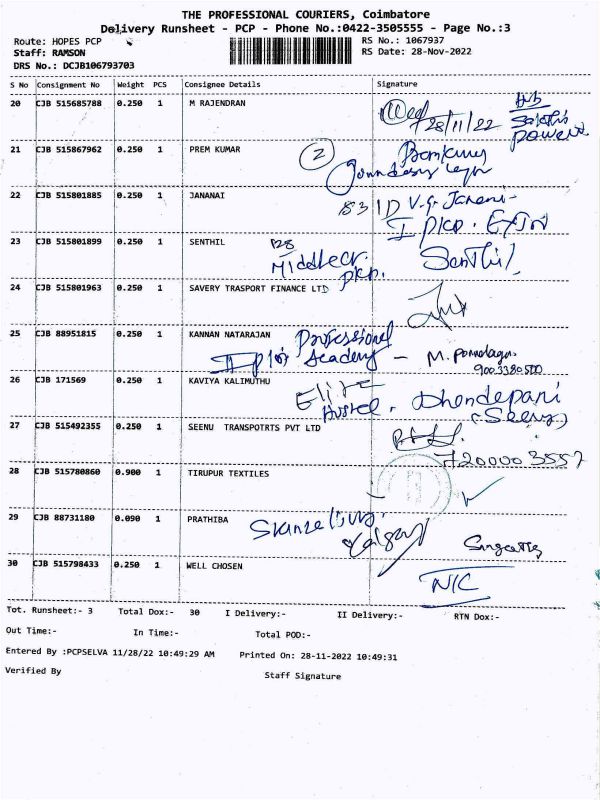 THE PROFESSIONAL COURIERS, Coimbatore
Delivery Runsheet - PCP - Phone No.:0422-3505555 - Page No.:3
Route: HOPES PCP RS No.: 1067937
Staff: RAMSON RS Date: 28-Nov-2022
DRS No.: DCJB106793703
S No Consignment No Weight PCS Consignee Details Signature
20 CJB 515685788 0.250 1 M RAJENDRAN
28/11/22
21 CJB 515867962 0.250 1 PREM KUMAR
2
22 CJB 515801885 0.250 1 JANANAI
23 CJB 515801899 0.250 1 SENTHIL
128 Senthil
24 CJB 515801963 0.250 1 SAVERY TRASPORT FINANCE LTD
25 CJB 88951815 0.250 1 KANNAN NATARAJAN Professional
Academy - M.
26 CJB 171569 0.250 1 KAVIYA KALIMUTHU Elite
27 CJB 515492355 0.250 1 SEENU TRANSPOTRTS PVT LTD
7200003557
28 CJB 515780860 0.900 1 TIRUPUR TEXTILES
29 CJB 88731180 0.090 1 PRATHIBA
30 CJB 515798433 0.250 1 WELL CHOSEN
NIC
Tot. Runsheet:- 3 Total Dox:- 30 I Delivery:- II Delivery:- RTN Dox:-
Out Time:- In Time:- Total POD:-
Entered By :PCPSELVA 11/28/22 10:49:29 AM Printed On: 28-11-2022 10:49:31
Verified By Staff Signature